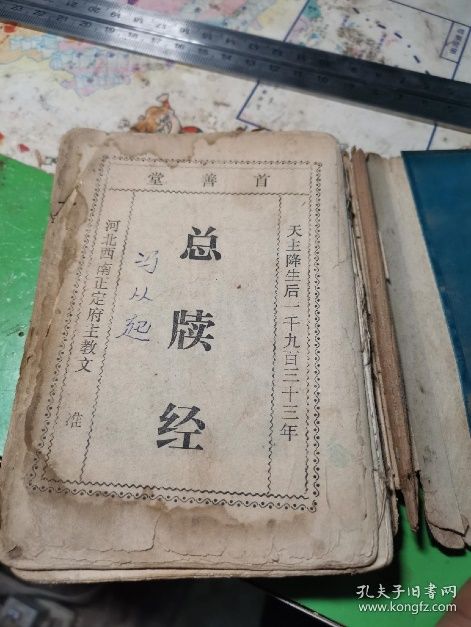 首善堂
天主降生后一千九百三十三年
总牍经
冯从起
河北西南正定府主教文 准
孔夫子旧书网
www.kongfz.com